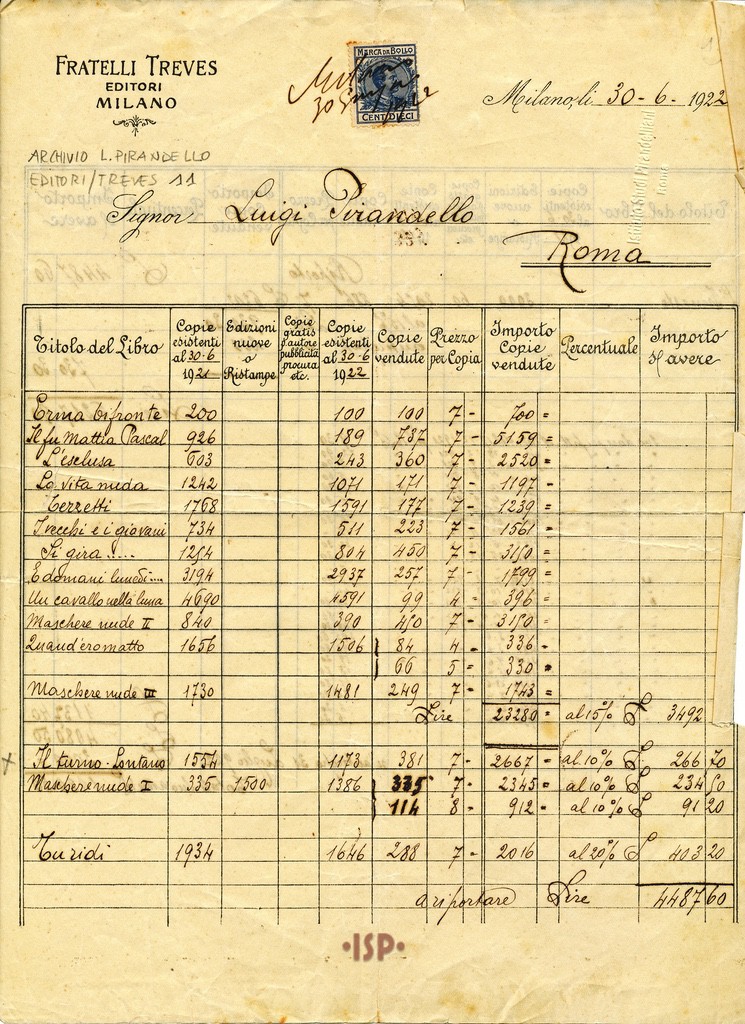 FRATELLI TREVES
EDITORI
MILANO
MARCA DA BOLLO
CENT. DIECI
Milano, li 30-6-1922
ARCHIVIO L. PIRANDELLO
EDITORI/TREVES 11
Signor Luigi Pirandello
Roma
Titolo del Libro | Copie esistenti al 30-6 1921 | Edizioni nuove o Ristampe | Copie gratis l'autore pubblicità procura etc. | Copie esistenti al 30-6 1922 | Copie vendute | Prezzo per Copia | Importo Copie vendute | Percentuale | Importo s/ avere
Erma bifronte 200 100 100 7- 700=
Il fu Mattia Pascal 926 189 737 7- 5159=
L'esclusa 603 243 360 7- 2520=
La vita nuda 1242 1071 171 7- 1197-
Terzetti 1768 1591 177 7- 1239=
I vecchi e i giovani 734 511 223 7- 1561=
Si gira..... 1254 804 450 7- 3150=
E domani lunedì.... 3194 2937 257 7- 1799=
Un cavallo nella luna 4690 4591 99 4- 396=
Maschere nude II 840 390 450 7- 3150=
Quand'ero matto 1656 1506 84 4- 336=
66 5- 330=
Maschere nude III 1730 1481 249 7- 1743=
Lire 23280= al 15% L 3492
x Il turno - Lontano 1554 1173 381 7- 2667- al 10% L 266 70
Maschere nude I 335 1500 1386 335 7- 2345- al 10% L 234 50
114 8- 912- al 10% L 91 20
Turidi 1934 1646 288 7- 2016 al 20% L 403 20
a riportare Lire 4487 60
•ISP•